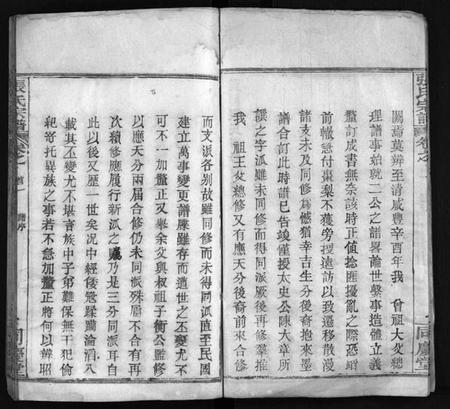 張氏宗譜 卷之一 同慶堂
關焉莫辨至清咸豐辛酉年我 曾祖大文總
理譜事始就二公之譜畧論世擊事造體立義
釐訂成書無奈該時正值捻匪擾亂之際恐蹈
前轍急付棗梨不獲旁搜遠訪以致遷移散漫
諸支未及同修為憾猶幸吉生分後裔抱來
譜合訂此時譜已告竣僅按太史公陳大章所
譔之字派雖未同修而得同派厥後再修隔前
我 祖王女總修又有應天分後裔前來合修
而支派各別故雖同修而未得同派直至民國
建立萬事變更譜牒雖存而遭世之丕變尤不
可不一加釐正又舉余交與叔祖子衡公監修
以應天分兩屆合修仍未同派殊屬不合再
次續修應履行新派之議乃是三分同派耳自
此以後又歷一世矣況中經蹂躪八
載其丕變尤不堪言族中子弟難保無干犯倫
紀寄托異族之事若不急加釐正將何以辨昭
張氏宗譜 卷之一 譜序 同慶堂